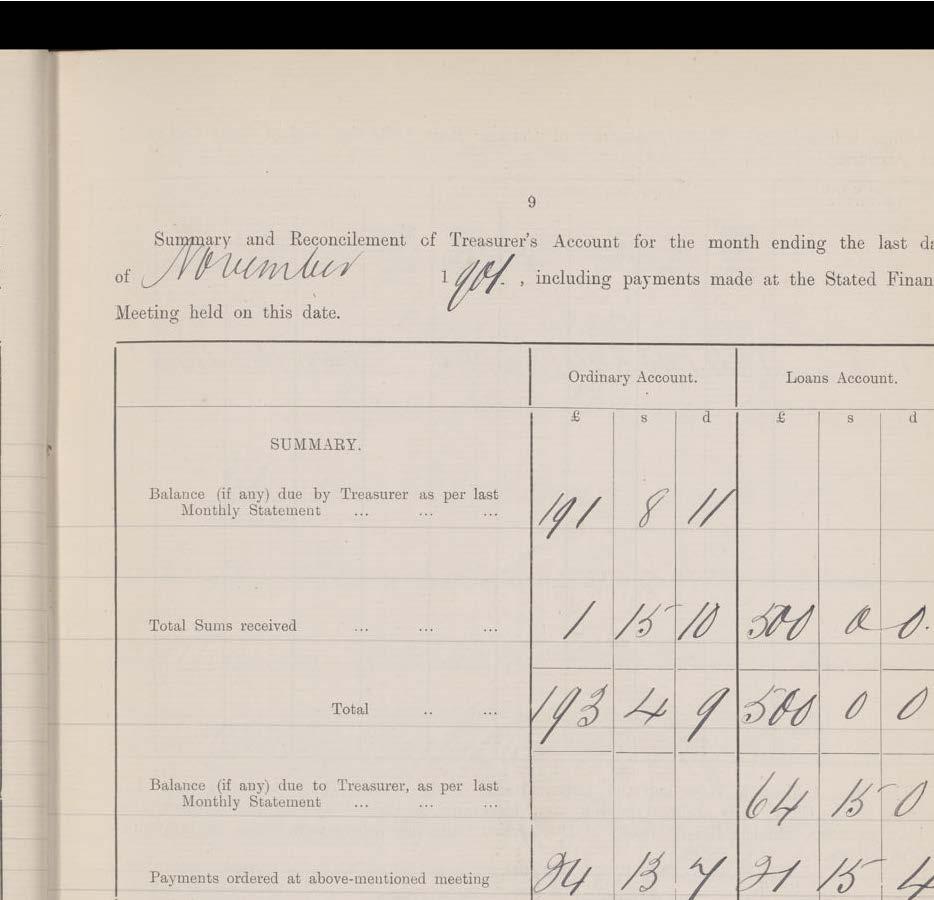 9
Summary and Reconcilement of Treasurer's Account for the month ending the last da
of November 1901. , including payments made at the Stated Finan
Meeting held on this date.
Ordinary Account. Loans Account.
£ s d £ s d
SUMMARY.
Balance (if any) due by Treasurer as per last
Monthly Statement ... ... ... 191 8 11
Total Sums received ... ... ... 1 15 10 500 0 0.
Total .. ... 193 4 9 500 0 0
Balance (if any) due to Treasurer, as per last
Monthly Statement ... ... ... 64 15 0
Payments ordered at above-mentioned meeting 24 13 7 21 15 4